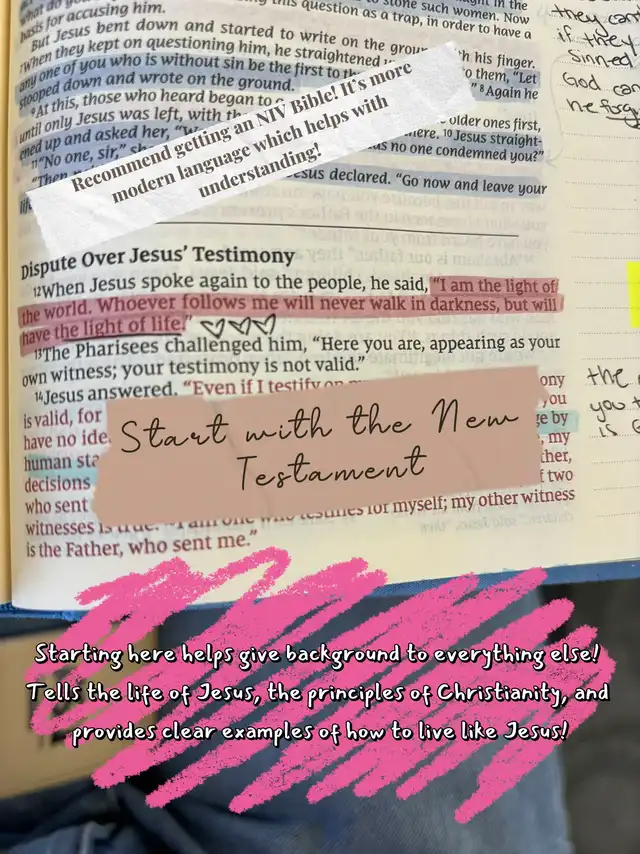 what do yo
this question as a trap, in order to have a
basis for accusing him.
to stone such women. Now
But Jesus bent down and started to write on the grou h his finger.
7When they kept on questioning him, he straightened to them, "Let
any one of you who is without sin be the first to " 8Again he
stooped down and wrote on the ground.
9At this, those who heard began to older ones first,
until only Jesus was left, with th here. 10Jesus straight-
ened up and asked her, "W as no one condemned you?"
11"No one, sir," sh
"Then esus declared. "Go now and leave your
life
Recommend getting an NIV Bible! It's more
modern language which helps with
understanding!
they can
if they
sinned
God can
he forg
Dispute Over Jesus' Testimony
12When Jesus spoke again to the people, he said, "I am the light of
the world. Whoever follows me will never walk in darkness, but will
have the light of life."
13The Pharisees challenged him, "Here you are, appearing as your
own witness; your testimony is not valid."
14Jesus answered, "Even if I testify on ony
is valid, for you
have no ide ge by
human sta , my
decisions ther,
who sent f two
witnesses is true. 18I am one who testifies for myself; my other witness
is the Father, who sent me."
the
you
is
Start with the New
Testament
Starting here helps give background to everything else!
Tells the life of Jesus, the principles of Christianity, and
provides clear examples of how to live like Jesus!